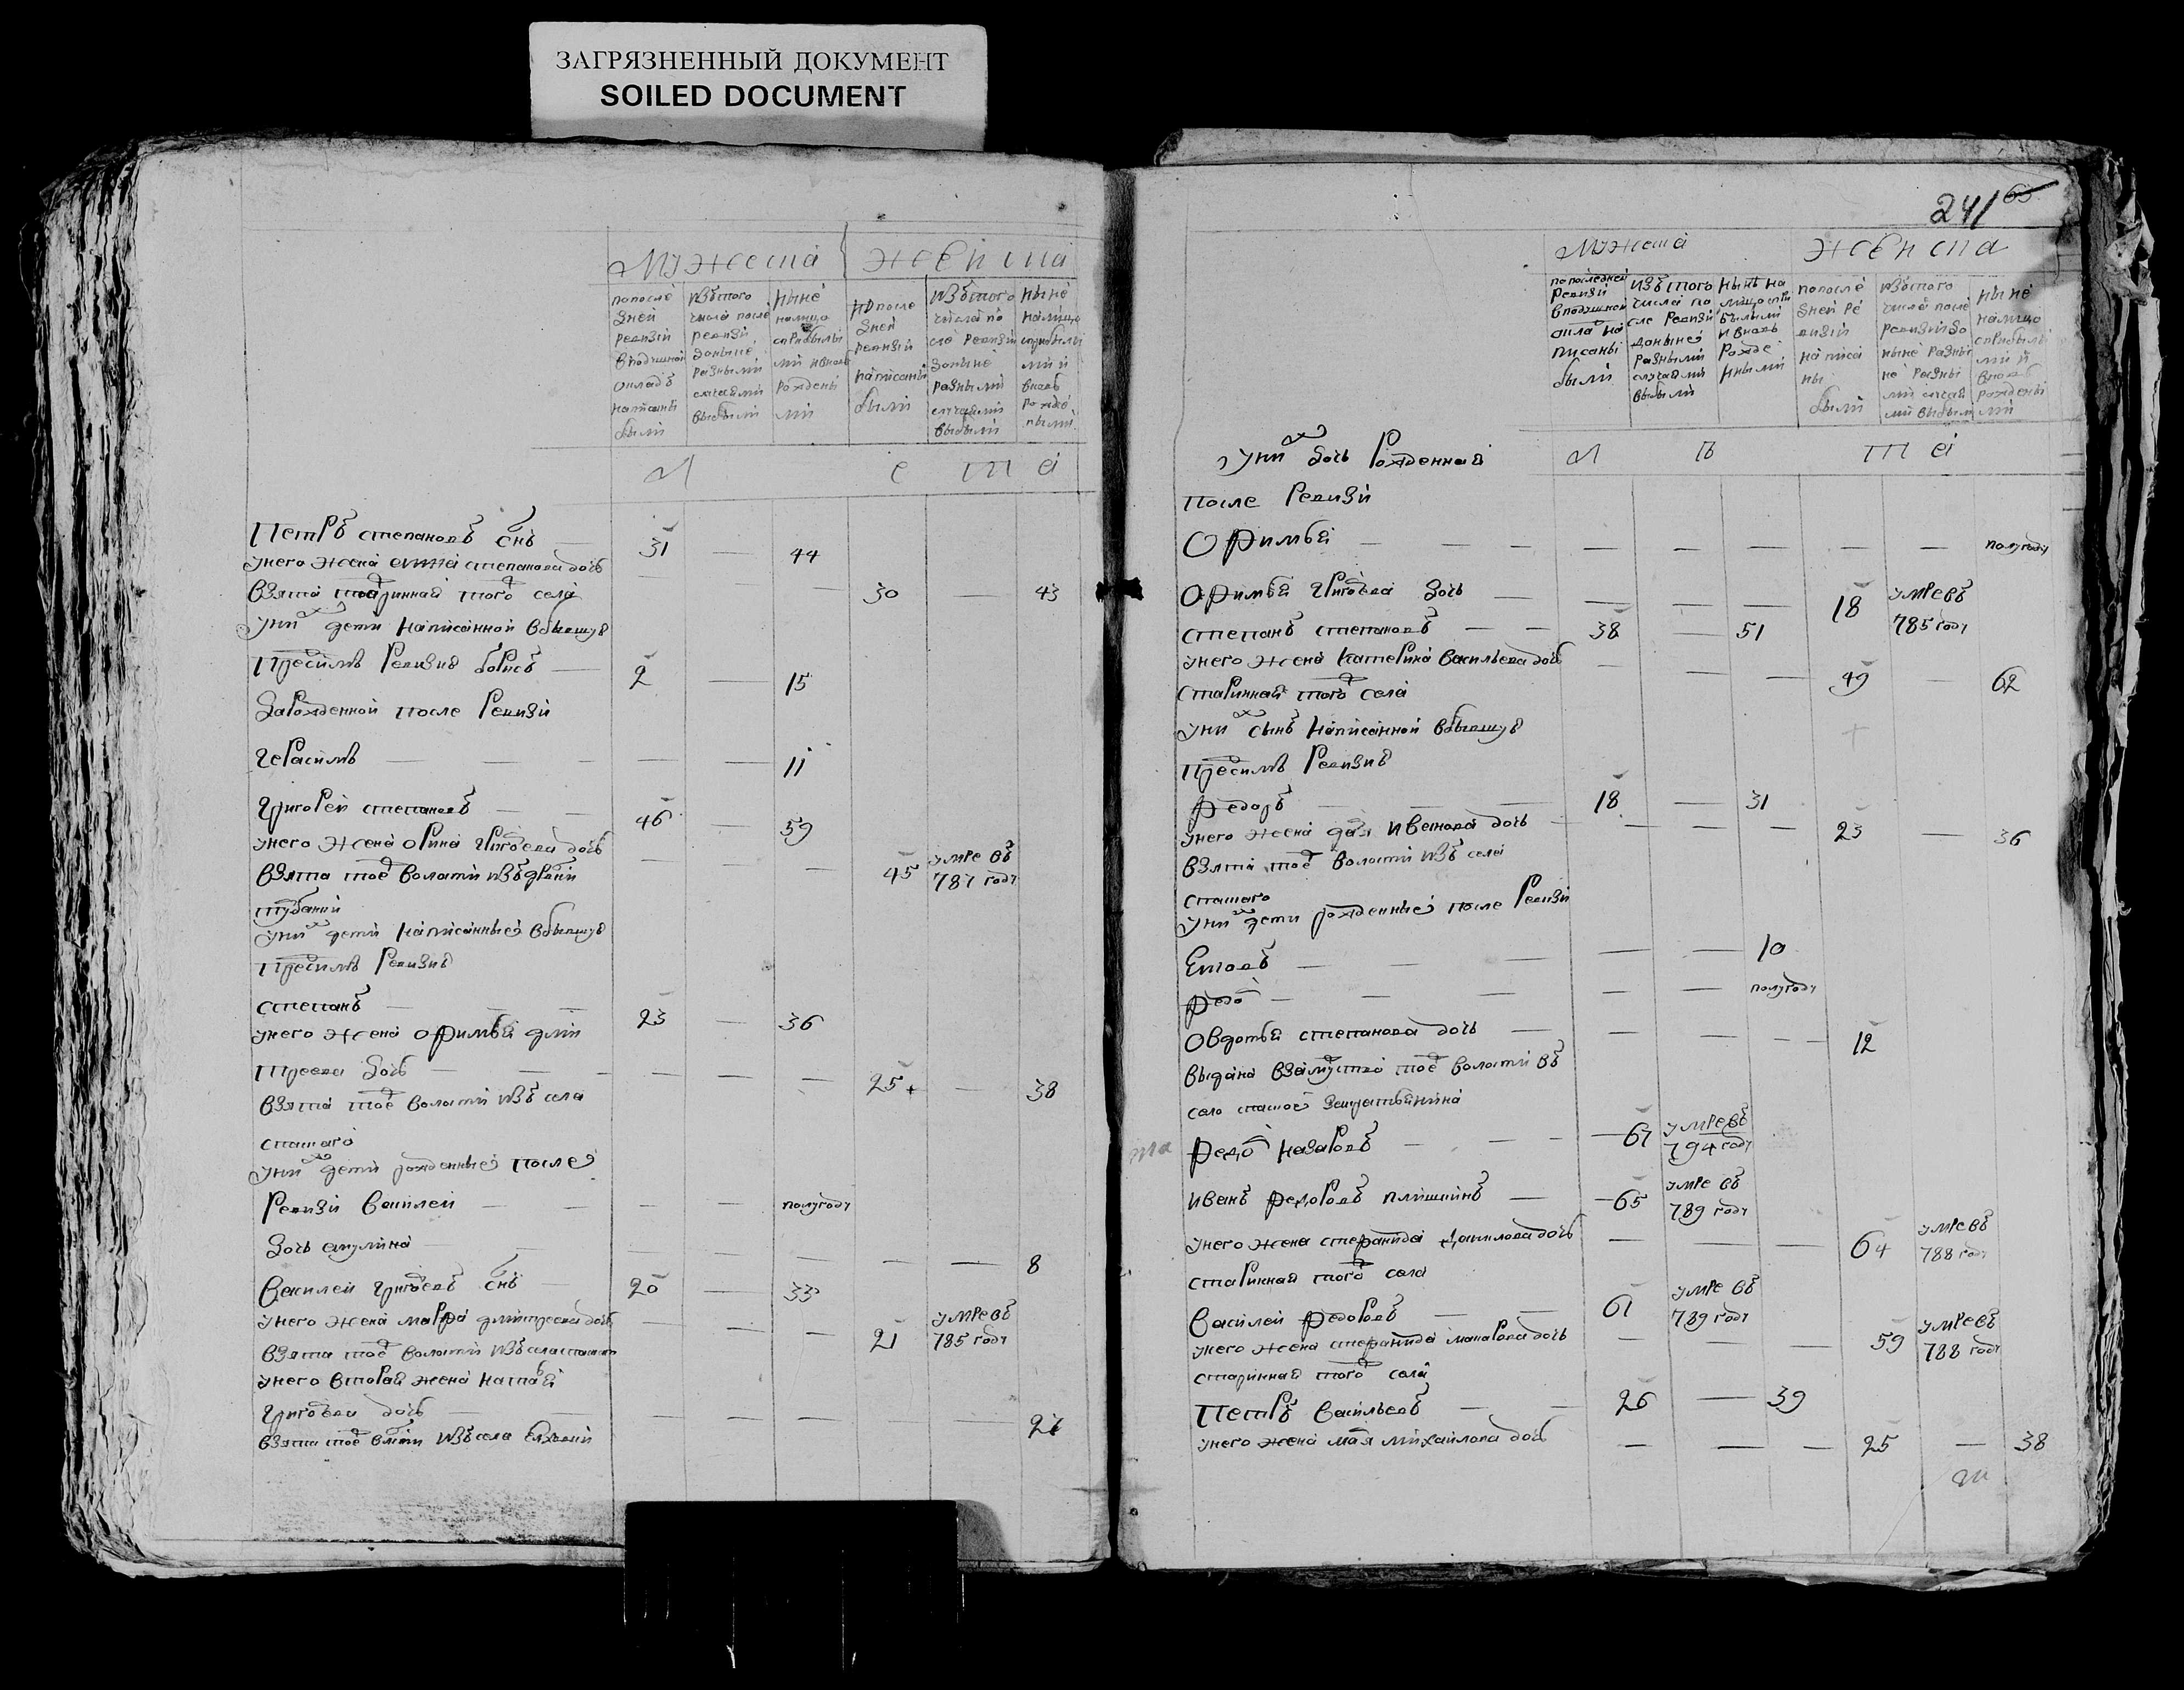 ЗАГРЯЗНЕННЫЙ ДОКУМЕНТ
SOILED DOCUMENT
мужеска женска
попосле дней ревизии в подушной окладъ написаны были
изъ того числа после ревизи доныне разными случаями выбыли
ныне налицо с прибылыми и вновь рождеными
по после дней ревизии написаны были
изъ того числа после ревизии доныне разными случаями выбыли
ныне налицо с прибылыми и вновь рождеными
л е т а
Петръ степановъ снъ — 31 — 44
у него жена анна степанова дочь
взята старинная того села — — 30 — 43
у них дети написанной в бывшую
пред симъ ревизию борисъ — 2 — 15
Зарожденной после Ревизи
Герасимъ — — — — — 11
Григорей степановъ — 46 — 59
у него жена орина Григорева дочь
взята тое волости изъ дрвни — — 45 умре въ 787 году
у них дети написанные в бывшую
пред симъ Ревизию
степанъ — 23 — 36
у него жена офимья дми
треева дочь — — — — — 25 — 38
взята тое волости изъ села
спаского
у них дети рожденные после
Ревизи василей — — — — полугоду
дочь акулина — — — — 8
Василей григоревъ снъ — 20 — 33
у него жена мавра дмитреева дочь — — — 21 умре въ 785 году
взята тое волости изъ села спаского
у него вторая жена наталья
григорева дочь — — — — — 26
взята тое влсти изъ села
241 65
мужеска женска
попоследней ревизии в подушной оклад написаны были
изъ того числа после Ревизии доныне разными случаями выбыли
ныне налицо с прибылыми и вновь рожденными
попосле дней ревизии написаны были
изъ того числа после ревизии доныне разными случаями выбыли
ныне налицо с прибылыми и вновь рождеными
л ѣ т а
у них дочь Рожденная
после Ревизи
Офимья — — — — — — — — полугоду
Офимья григорева дочь — — — — 18 умре въ 785 году
степанъ степановъ — — 38 — 51
у него жена катерина васильева дочь
старинная того села — — — 49 — 62
у них сынъ написанной в бывшую
пред симъ Ревизию
федоръ — — — 18 — 31
у него жена дарья иванова дочь — — — — 23 — 36
взята тое волости изъ села
спаского
у них дети рожденные после Ревизи
Егоръ — — — — 10
федоръ — — — — — полугоду
Овдотья степанова дочь — — — — — 12
выдана в замуство тое волости въ
село спаское
федоръ назаровъ — — — 67 умре въ 794 году
иванъ федоровъ — 65 умре въ 789 году
у него жена степанида данилова дочь — — — 64 умре въ 788 году
старинная того села
Василей федоровъ — — 61 умре въ 789 году
у него жена степанида макарова дочь — — — 59 умре въ 788 году
старинная того села
Петръ васильевъ — — 26 — 39
у него жена марья михайлова дочь — — — 25 — 38